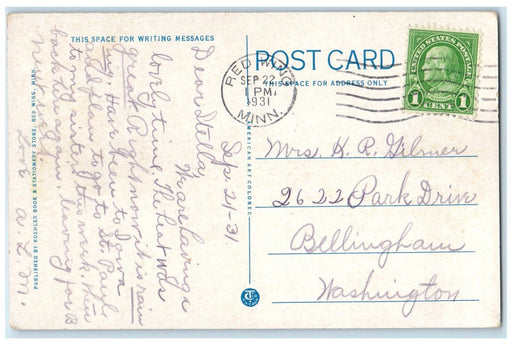 THIS SPACE FOR WRITING MESSAGES
POST CARD
THIS SPACE FOR ADDRESS ONLY
RED WING
SEP 22
1 PM
1931
MINN.
UNITED STATES POSTAGE
1 CENT 1
Sep. 21-31
Dear Stella,
We are having a
lovely time. The
great. Right now it is rain
ing. Have been to Iowa
and plan to go to St. Paul
to my sister this week, then
back again, leaving for B
next
Love A. L. M.
PUBLISHED BY KOEHLER BOOK & STATIONERY STORE, RED WING, MINN.
AMERICAN ART COLORED
Mrs. H. R. Gilmer
2622 Park Drive
Bellingham
Washington